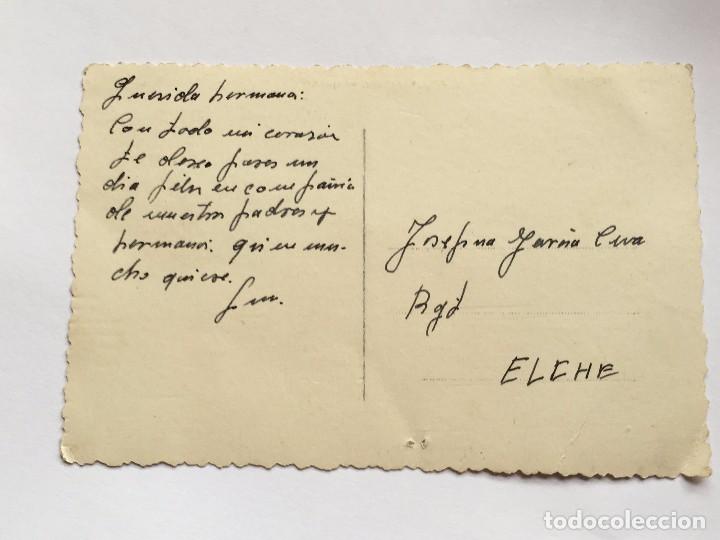 Querida hermana:
Con todo mi corazón
te deseo pases un
dia feliz en compañia
de nuestros padres y
hermanos. quien mu-
cho quiere.
Josefina García
Rgt
ELCHE
todocoleccion